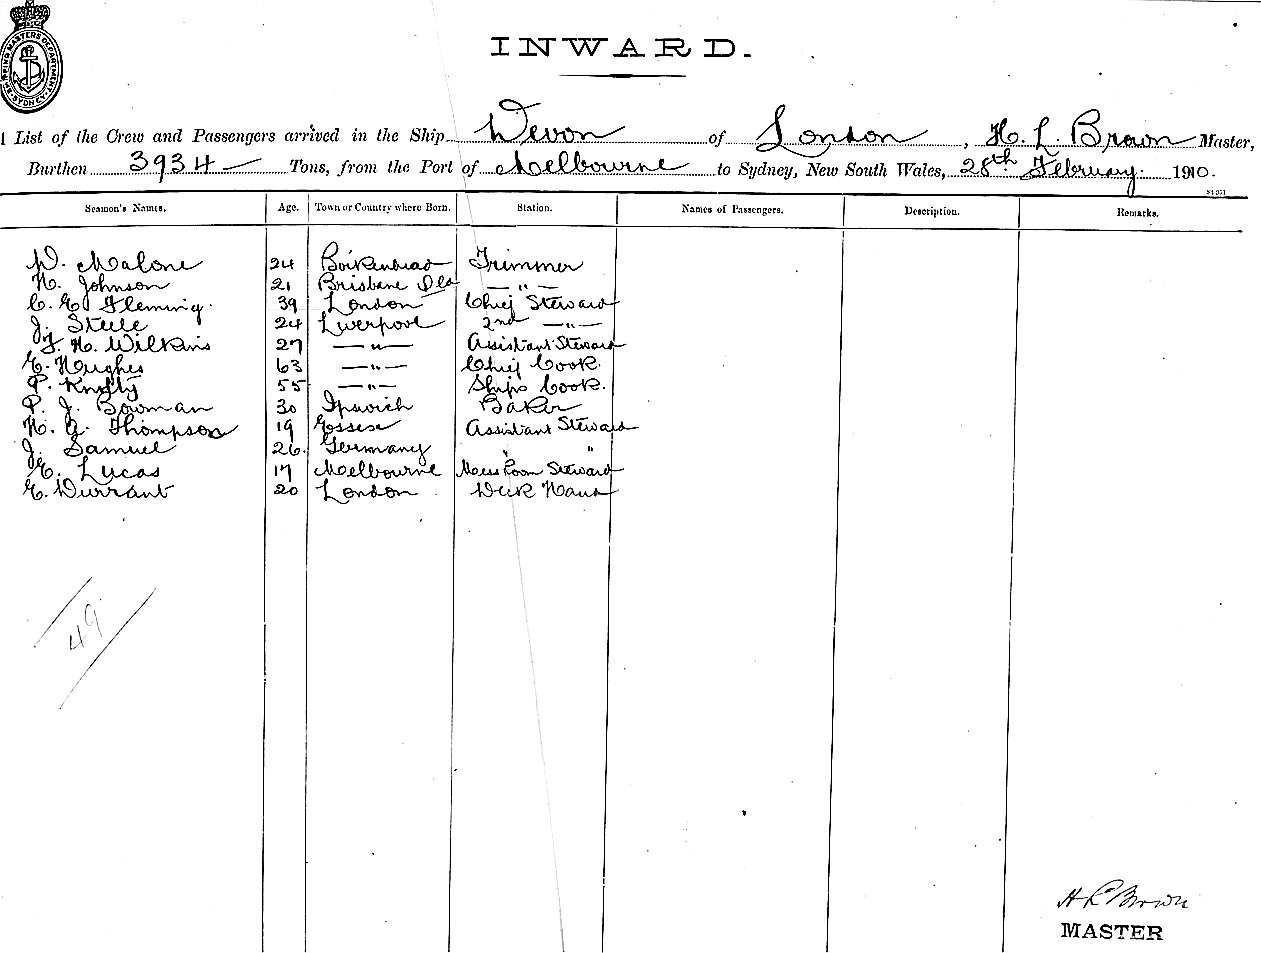 SHIPPING MASTERS DEPARTMENT SYDNEY
INWARD.
List of the Crew and Passengers arrived in the Ship Devon of London, H. L. Brown Master,
Burthen 3934 — Tons, from the Port of Melbourne to Sydney, New South Wales, 28th February 1910.
Seamen's Names. Age. Town or Country where Born. Station. Names of Passengers. Description. Remarks.
D. Malone 24 Birkenhead Trimmer
H. Johnson 21 Brisbane Qld — " —
C. E. Fleming 39 London Chief Steward
J. Steele 24 Liverpool 2nd — " —
F. H. Wilkins 27 — " — Assistant Steward
E. Hughes 63 — " — Chief Cook.
P. 55 — " — Ships Cook.
P. J. Bowman 30 Ipswich Baker
H. A. Thompson 19 Essex Assistant Steward
J. Samuel 26 Germany " "
E. Lucas 17 Melbourne Mess Room Steward
E. Durrant 20 London Deck Hand
49
H L Brown
MASTER